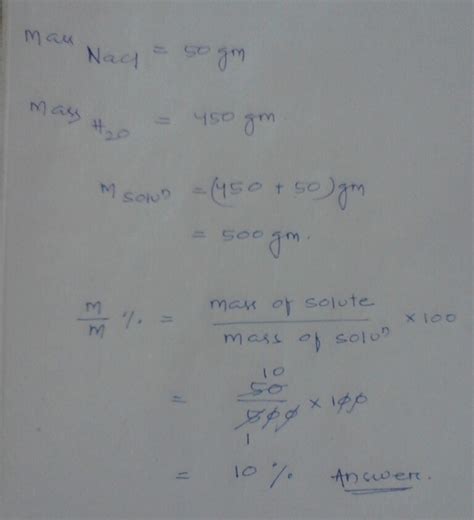 Mass NaCl = 50 gm
Mass H2O = 450 gm.
M solun = (450 + 50) gm
= 500 gm.
m/m % = mass of solute / mass of solun × 100
10
= 50/500 × 100
1
= 10 % Answer.